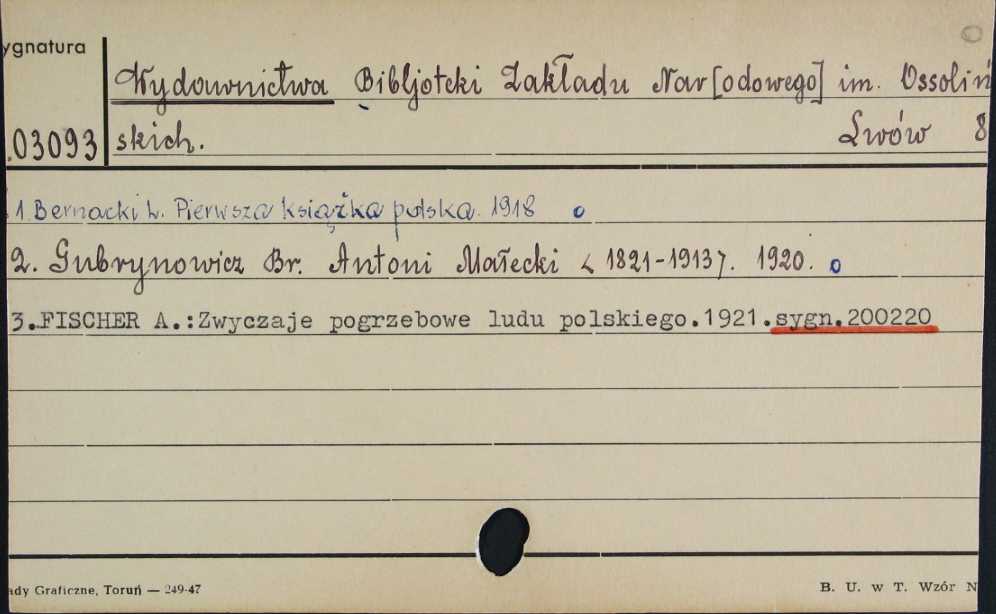 ygnatura
Wydawnictwa Bibljoteki Zakładu Nar[odowego] im. Ossoliń
.03093 skich. Lwów 8
1. Bernacki L. Pierwsza książka polska. 1918 o
2. Gubrynowicz Br. Antoni Małecki <1821-1913>. 1920. o
3.FISCHER A.:Zwyczaje pogrzebowe ludu polskiego.1921.sygn.200220
ady Graficzne, Toruń — 249-47 B. U. w T. Wzór N